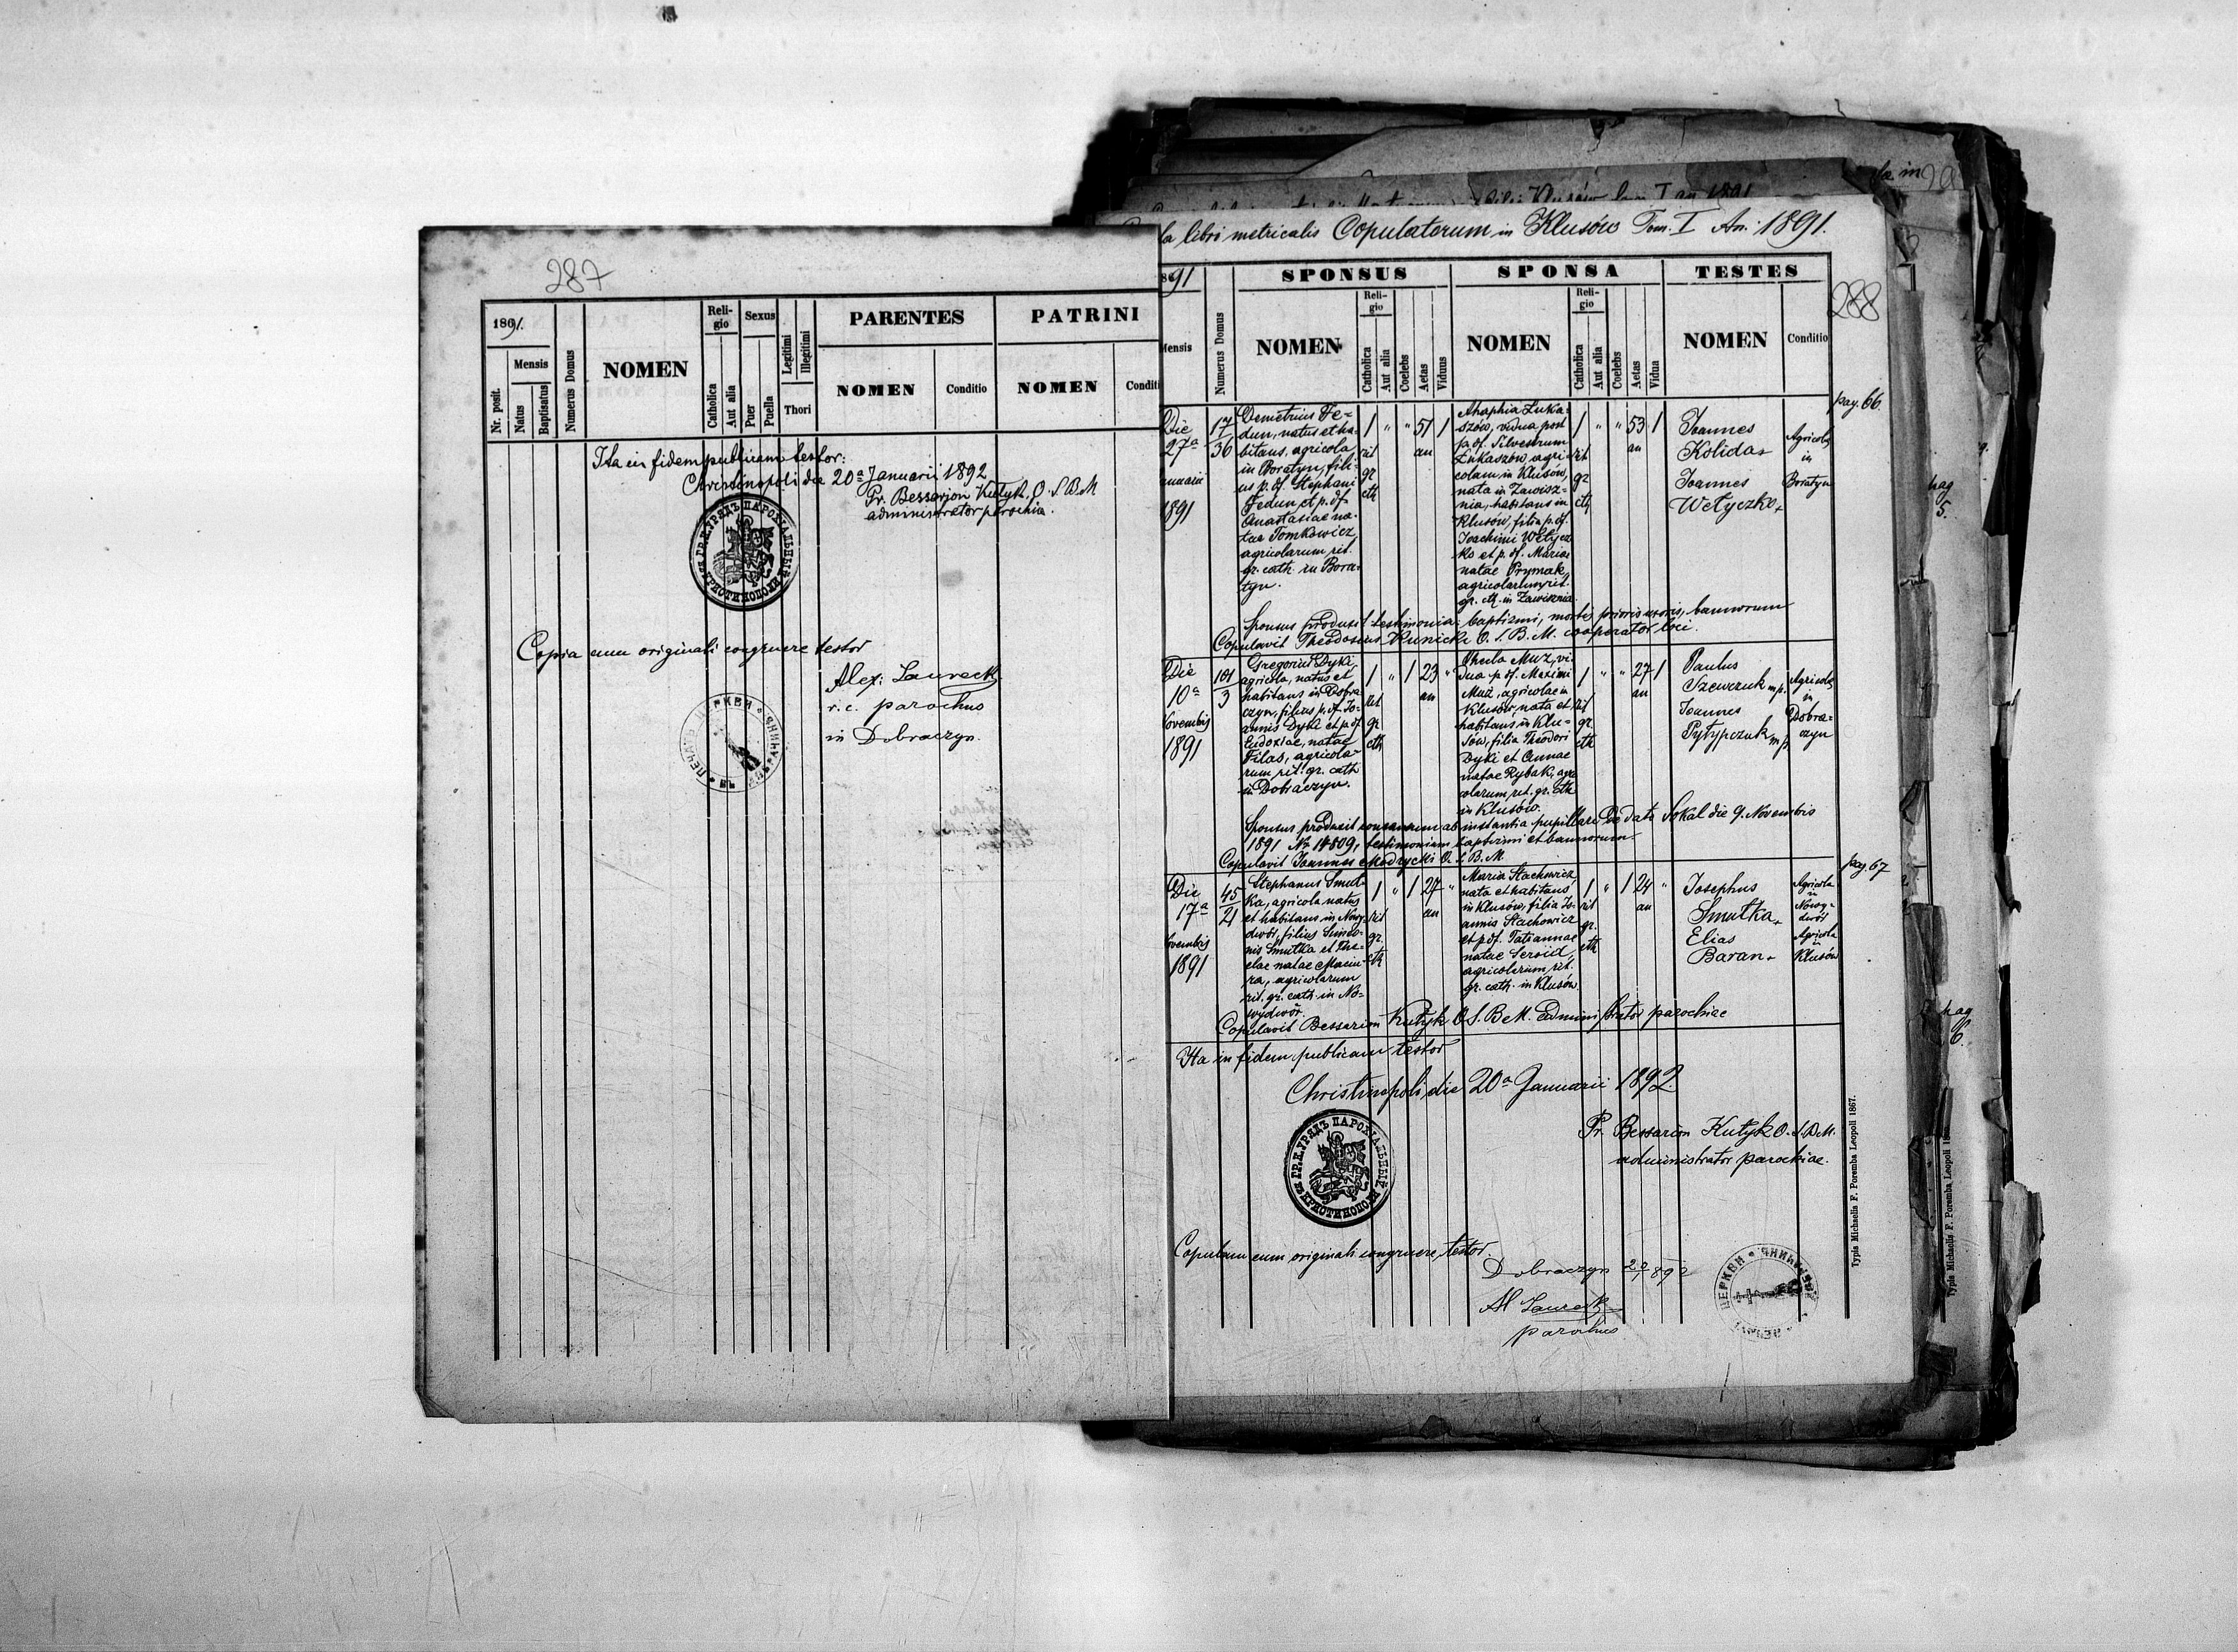 287
1891.
Nr. posit.
Mensis
Natus
Baptisatus
Numerus Domus
NOMEN
Religio
Catholica
Aut alia
Sexus
Puer
Puella
Legitimi
Illegitimi
Thori
PARENTES
NOMEN
Conditio
PATRINI
NOMEN
Conditi
Ita in fidem publicam testor:
Christinopoli die 20a Januarii 1892
Pr. Bessarion Kutyk, O. S. B. M
administrator parochiae.
Copia cum originali congruere testor
Alex: Laurecki
r. c. parochus
in Dobraczyn.
la libri metricalis Copulatorum in Klusów Tom. I An: 1891.
288
891
Mensis
Numerus Domus
SPONSUS
NOMEN
Religio
Catholica
Aut alia
Coelebs
Aetas
Viduus
SPONSA
NOMEN
Religio
Catholica
Aut alia
Coelebs
Aetas
Vidua
TESTES
NOMEN
Conditio
pag. 66
Die
27a
anuarii
1891
17
36
Demetrius Fe=
dun, natus et ha
bitans, agricola
in Boratyn, fili=
us p. df. Stephani
Fedun et p. df
Anastasiae na=
tae Tomkowicz,
agricolarum rit.
gr. cath. in Bora=
tyn.
1 " " 51 1
rit an
gr
cth
Ahaphia Łuka=
szów, vidua post
p. df. Silvestrum
Łukaszów, agri=
colam in Klusów,
nata in Zawisz=
nia, habitans in
Klusów, filia p. df.
Joachimi Wełycz
ko et p. df. Mariae
natae Prymak,
agricolarum rit.
gr. cth. in Zawisznia
1 " " 53 1
rit an
gr
cth
Joannes
Kolida +
Joannes
Wełyczko +
Agricolae
in
Boratyn
Sponsus produxit testimonia: baptismi, mortis prioris uxoris, bannorum
Copulavit Theodosius Kunicki O. S. B. M. cooperator loci.
Die
10a
ovembris
1891
101
3
Gregorius Dyki,
agricola, natus et
habitans in Dobra
czyn, filius p. df. Jo=
annis Dyki et p. df
Eudoxiae, natae
Filas, agricola=
rum rit. gr. cath
in Dobraczyn.
1 " 1 23 "
rit an
gr
cth
Thecla Muz, vi=
dua p. df. Maximi
Muż, agricolae in
Klusów nata et
habitans in Klu=
sów, filia Theodori
Dyki et Annae
natae Rybak, agri
colarum, rit. gr. cth
in Klusów.
1 " " 27 1
rit an
gr
cth
Paulus
Szewczuk mp.
Joannes
Pyłypczuk mp
Agricolae
in
Dobra=
czyn
Sponsus produxit consensum ab instantia pupillari de dato Sokal die 9. Novembris
1891 Nr 14809, testimonium baptismi et bannorum
Copulavit Joannes Modrycki O. S. B. M.
pag. 67
Die
17a
ovembris
1891
45
21
Stephanus Smut=
ka, agricola natus
et habitans in Nowy
dwór, filius Simeo=
nis Smutka et The=
clae natae Maciu=
ra, agricolarum
rit. gr. cath. in No=
wydwór.
1 " 1 27 "
rit an
gr.
cth
Maria Stachowicz,
nata et habitans
in Klusów, filia Jo=
annis Stachowicz
et p. df. Tatiannae
natae Seroid,
agricolarum, rit.
gr. cath. in Klusów
1 " 1 24 "
rit an
gr.
cth
Josephus
Smutka +
Elias
Baran +
Agricola
in
Nowy=
dwór
Agricola
in
Klusów
Copulavit Bessarion Kutyk O. S. B. M. administrator parochiae
Ita in fidem publicam testor
Christinopoli, die 20a Januarii 1892.
Pr. Bessarion Kutyk O. S. B. M.
administrator parochiae.
Copulam cum originali congruere testor.
Dobraczyn
Al Laurecki
parochus
Typis Michaelis F. Poremba Leopoli 1867.
pag
5.
pag
6.